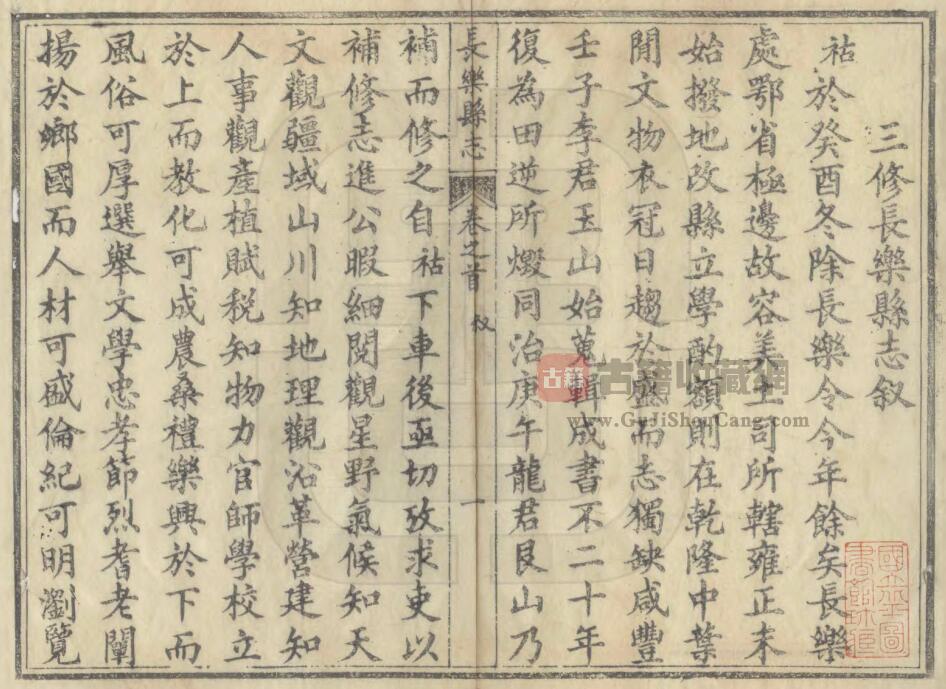 三修長樂縣志叙
祜於癸酉冬除長樂令今年餘矣長樂
處鄂省極邊故容美土司所轄雍正末
始撥地改縣立學酌額則在乾隆中葉
閒文物衣冠日趨於盛而志獨缺咸豐
壬子李君玉山始蒐輯成書不二十年
復為田逆所燬同治庚午龍君艮山乃
長樂縣志 卷之首 叙 一
補而修之自祜下車後亟切攷求吏以
補修志進公暇細閱觀星野氣候知天
文觀疆域山川知地理觀沿革營建知
人事觀產植賦稅知物力官師學校立
於上而教化可成農桑禮樂興於下而
風俗可厚選舉文學忠孝節烈耆老闡
揚於鄉國而人材可盛倫紀可明瀏覽
古籍 古籍收藏網
www.GuJiShouCang.com